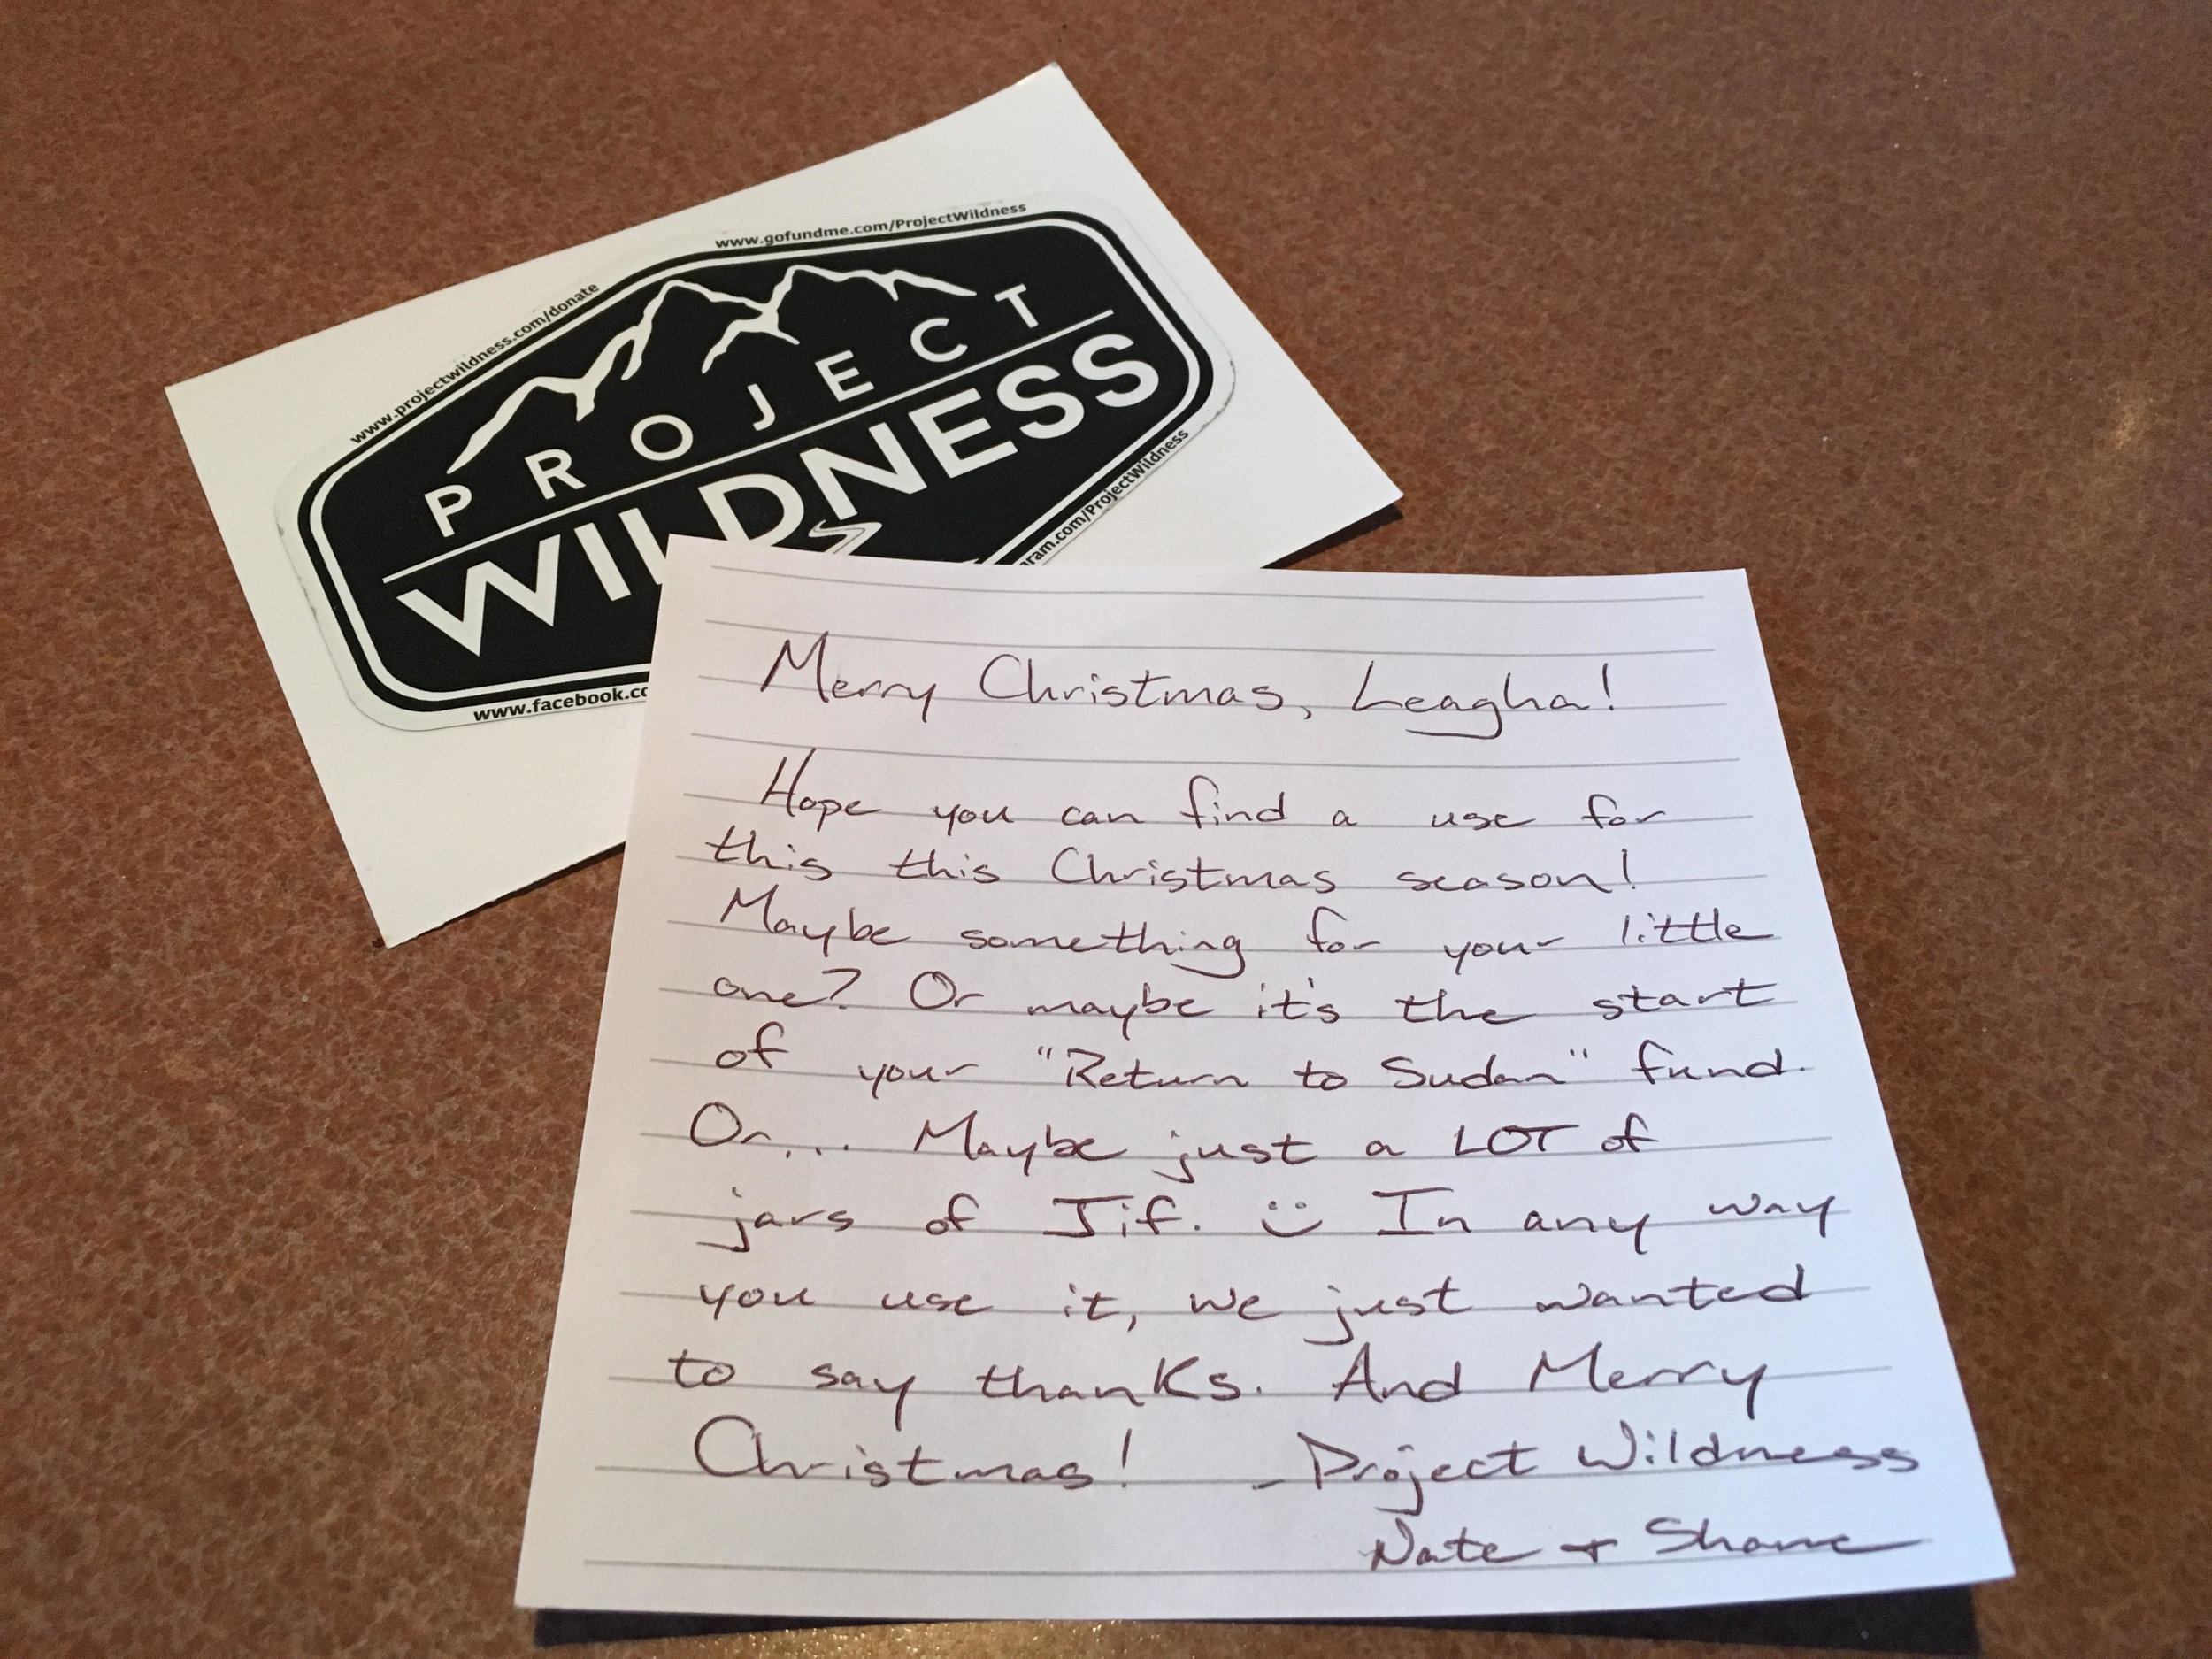 www.gofundme.com/ProjectWildness
www.projectwildness.com/donate
PROJECT
WILDNESS
ram.com/ProjectWildness
www.facebook.co
Merry Christmas, Leagha!
Hope you can find a use for
this this Christmas season!
Maybe something for your little
one? Or maybe it's the start
of your "Return to Sudan" fund.
Or... Maybe just a LOT of
jars of Jif. :) In any way
you use it, we just wanted
to say thanks. And Merry
Christmas! - Project Wildness
Nate + Shane